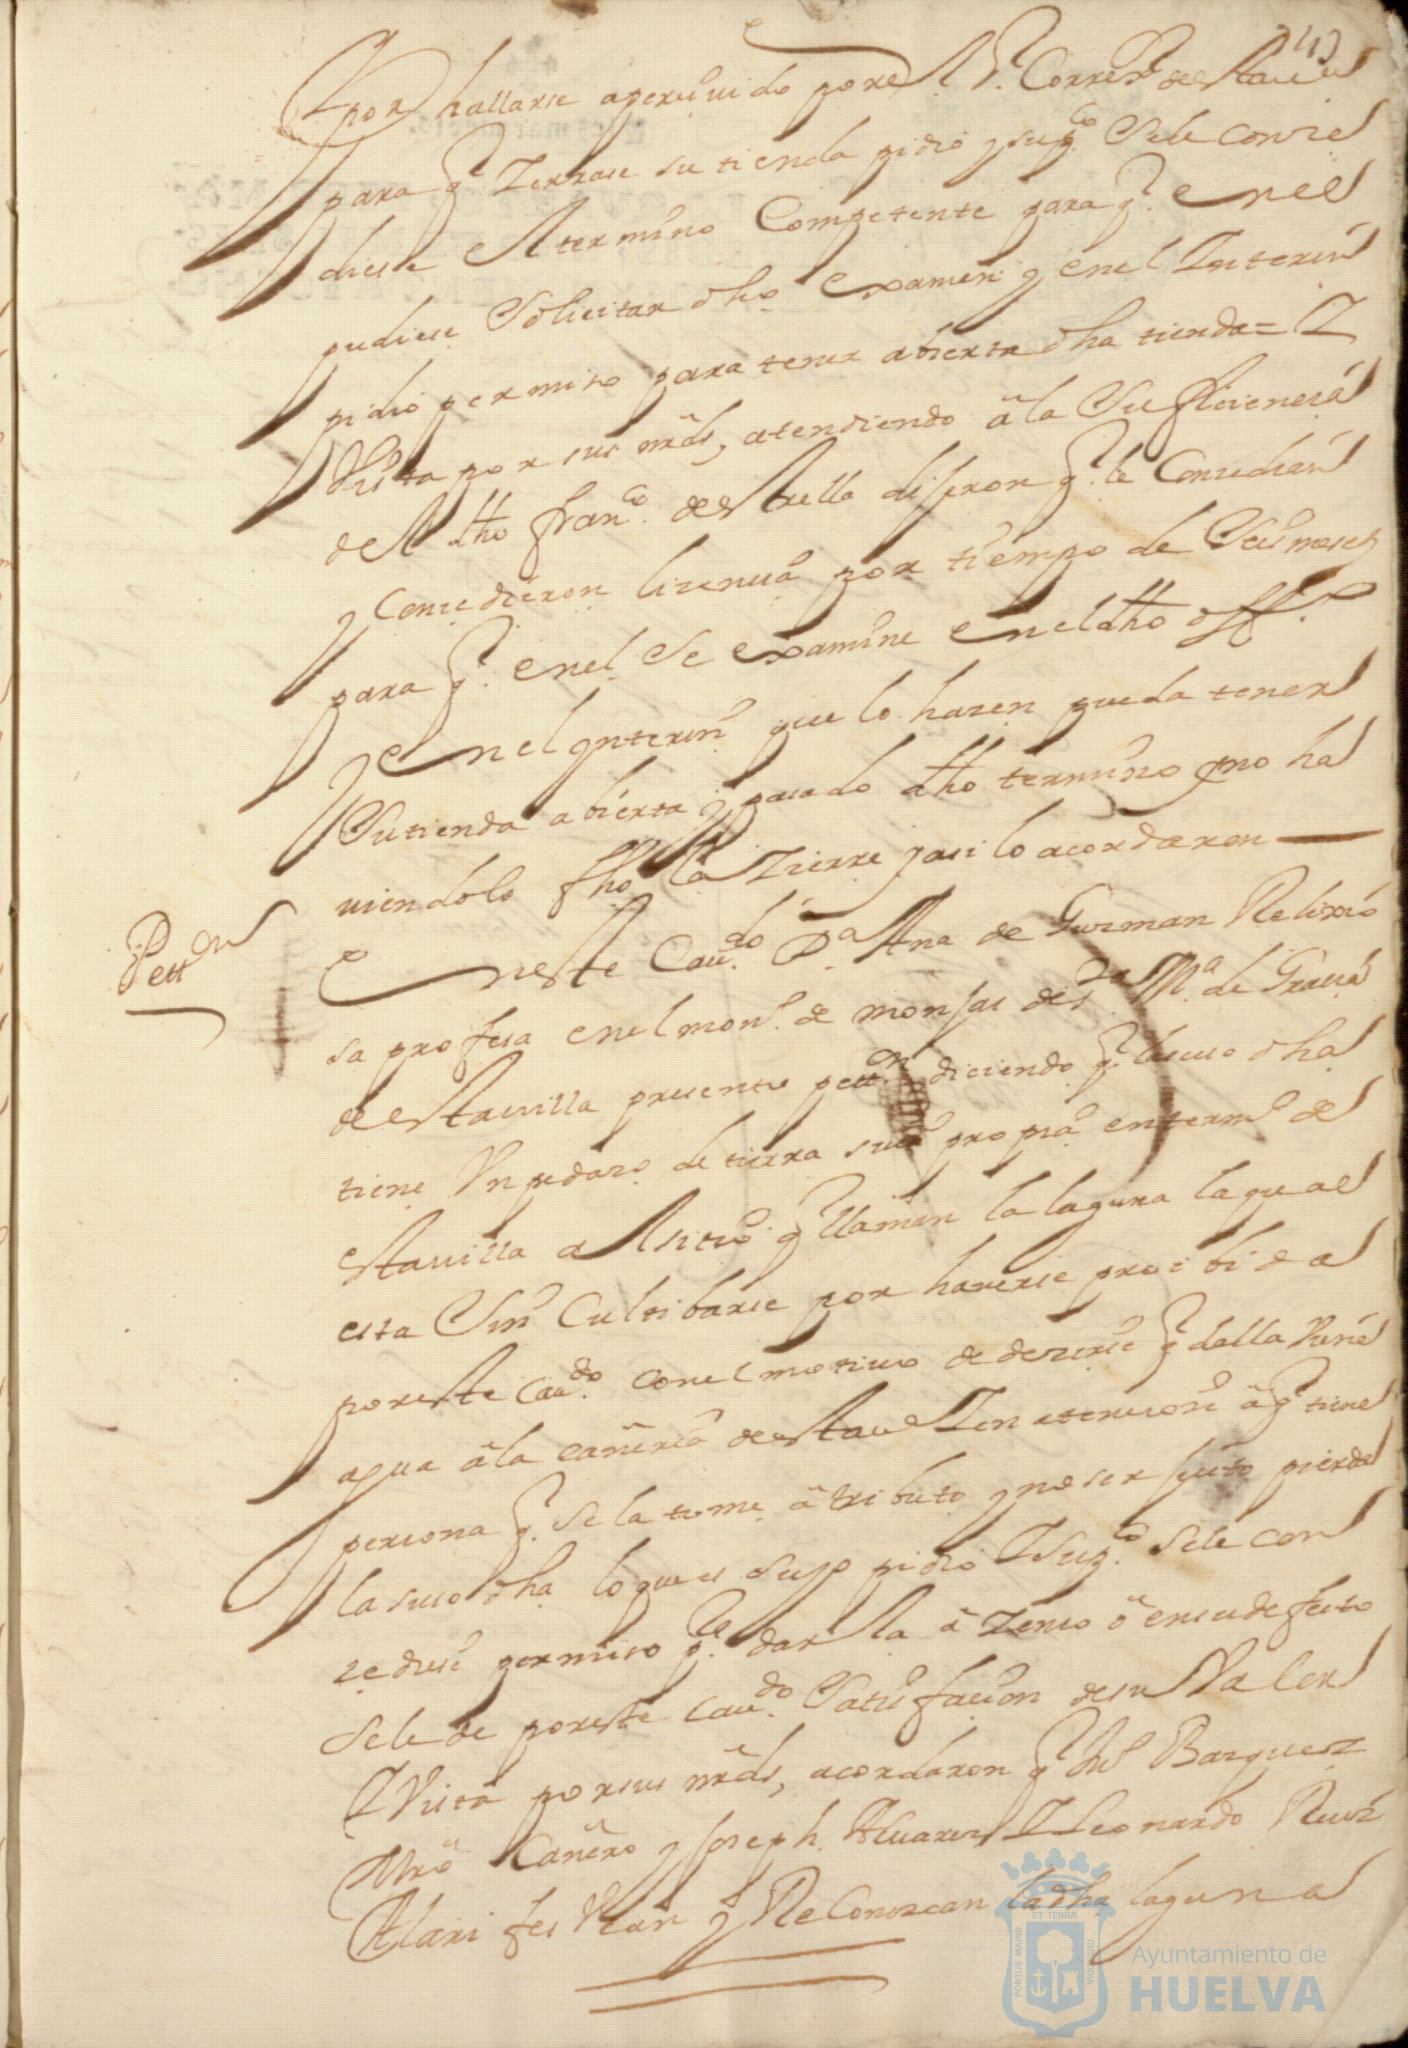 por hallarse aperziuido por el Sr. Correxr. de esta uilla
para q. zerrase su tienda pidio y supco. Se le conze
diese el termino Competente para q. en el
pudiese Solicitar dho examen y en el Interin
pidio permiso para tener abierta dha tienda = Y
Vista por sus mrds, atendiendo â la Suficiencia
del dho franco. de estrella dijeron q. le Conzedian
y Conzedieron lizencia por tiempo de Seis meses
para q. en el Se examine en el dho offo.
Y en el ynterin que lo hazen pueda tener
Su tienda abierta y pasado dho termino y no ha
uiendolo fho la zierre y asi lo acordaron
Petton
En este Caudo. Da. Ana de Guzman Relixio
sa profesa en el mono. de monjas de sta. Ma. de Gracia
de esta uilla presento petton. diciendo q. la suso dha
tiene Un pedazo de tierra suia propia en termo. de
esta uilla al sitio q. llaman la laguna la qual
esta Sin Cultibarse por hauerse proibido
por este Caudo. con el motiuo de dezirse q. della Viene
agua â la cañeria de esta ua. Y en atencion â q. tiene
persona q. Se la tome â tributo y no ser justo pierda
la suso dha lo que es suyo pidio Y supco. Se le con
zediese permiso pa. darla â Zenso ô en su defecto
Se le de por este Caudo. Satisfacion de su Valor
Y Vista por sus mrds, acordaron q. Ml. Bazquez
Mro Cañero y Joseph Aluarez Y Leonardo Ruiz
Alarifes Vean y Reconozcan la dha laguna
Ayuntamiento de
HUELVA